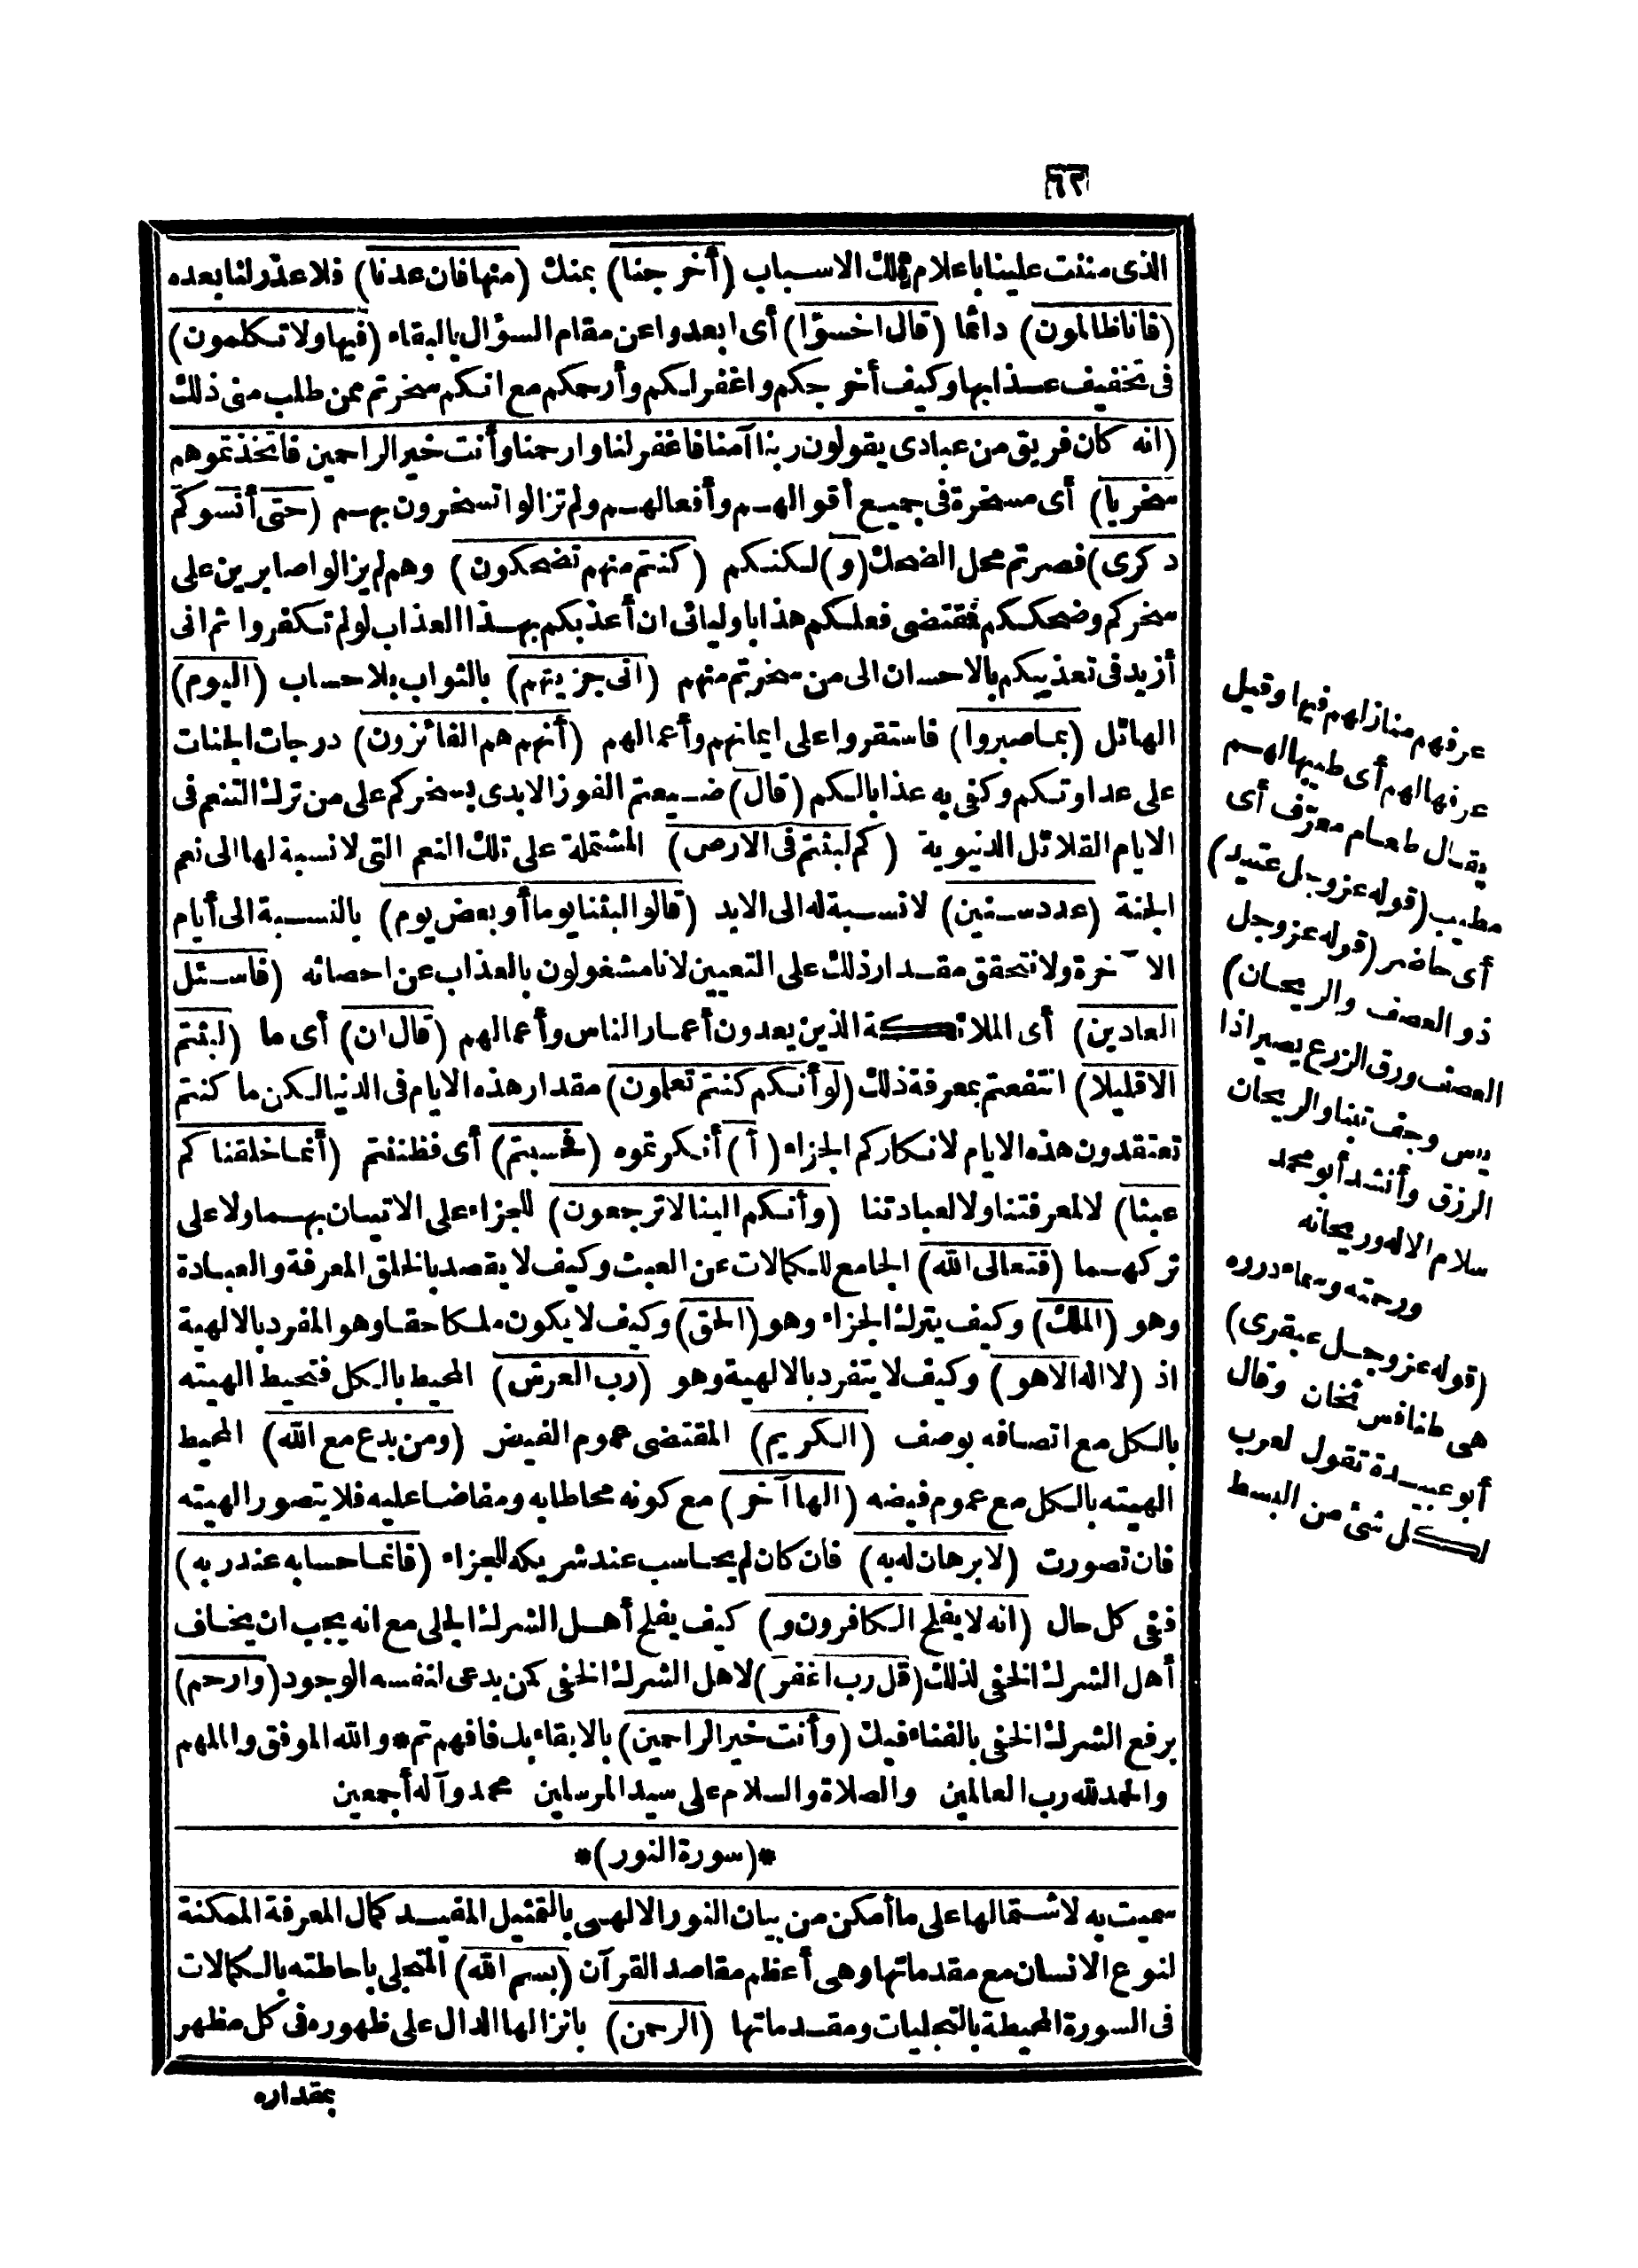 ٦٢
الذى مننت علينا باعلام تلك الاسباب (أخرجنا) بمنك (منها فان عدنا) فلا عذر لنا بعده
(فانا ظالمون) دائما (قال اخسؤا) أى ابعدوا عن مقام السؤال بالبقاء (فيها ولا تكلمون)
فى تخفيف عذابها وكيف أخرجكم واغفر لكم وأرحمكم مع انكم سخرتم ممن طلب منى ذلك
(انه كان فريق من عبادى يقولون ربنا آمنا فاغفر لنا وارحمنا وأنت خير الراحمين فاتخذتموهم
سخريا) أى مسخرة فى جميع أقوالهم وأفعالهم ولم تزالوا تسخرون بهم (حتى أنسوكم
ذكرى) فصرتم محل الضحك (و) لكنكم (كنتم منهم تضحكون) وهم لم يزالوا صابرين على
سخركم وضحككم فمقتضى فعلكم هذا باوليائى ان أعذبكم بهذا العذاب لو لم تكفروا ثم انى
أزيد فى تعذيبكم بالاحسان الى من سخرتم منهم (انى جزيتهم) بالثواب بلا حساب (اليوم)
الهائل (بما صبروا) فاستقروا على ايمانهم وأعمالهم (أنهم هم الفائزون) درجات الجنات
على عداوتكم وكفى به عذابا لكم (قال) ضيعتم الفوز الابدى بسخركم على من ترك التنعم فى
الايام القلائل الدنيوية (كم لبثتم فى الارض) المشتملة على تلك النعم التى لا نسبة لها الى نعم
الجنة (عدد سنين) لا نسبة له الى الابد (قالوا لبثنا يوما أو بعض يوم) بالنسبة الى أيام
الآخرة ولا نتحقق مقدار ذلك على التعيين لانا مشغولون بالعذاب عن احصائه (فاسئل
العادين) أى الملائكة الذين يعدون أعمار الناس وأعمالهم (قال ان) أى ما (لبثتم
الا قليلا) انتفعتم بمعرفة ذلك (لو أنكم كنتم تعلمون) مقدار هذه الايام فى الدنيا لكن ما كنتم
تعتقدون هذه الايام لانكاركم الجزاء (أ) أنكرتموه (فحسبتم) أى فظننتم (أنما خلقناكم
عبثا) لا لمعرفتنا ولا لعبادتنا (وأنكم الينا لا ترجعون) للجزاء على الاتيان بهما ولا على
تركهما (فتعالى الله) الجامع للكمالات عن العبث وكيف لا يقصد بالخلق المعرفة والعبادة
وهو (الملك) وكيف يترك الجزاء وهو (الحق) وكيف لا يكون ملكا حقا وهو المفرد بالالهية
اذ (لا اله الا هو) وكيف لا يتفرد بالالهية وهو (رب العرش) المحيط بالكل فتحيط الهيته
بالكل مع اتصافه بوصف (الكريم) المقتضى عموم الفيض (ومن يدع مع الله) المحيط
الهيته بالكل مع عموم فيضه (الها آخر) مع كونه محاطا به ومفاضا عليه فلا يتصور الهيته
فان تصورت (لا برهان له به) فان كان لم يحاسب عند شريكه للجزاء (فانما حسابه عند ربه)
ففى كل حال (انه لا يفلح الكافرون و) كيف يفلح أهل الشرك الجلى مع انه يجب ان يخاف
أهل الشرك الخفى لذلك (قل رب اغفر) لاهل الشرك الخفى كمن يدعى لنفسه الوجود (وارحم)
برفع الشرك الخفى بالفناء فيك (وأنت خير الراحمين) بالابقاء بك فافهم تم * والله الموفق والملهم
والحمد لله رب العالمين والصلاة والسلام على سيد المرسلين محمد وآله أجمعين
*(سورة النور)*
سميت به لاشتمالها على ما أمكن من بيان النور الالهى بالتمثيل المفيد كمال المعرفة الممكنة
لنوع الانسان مع مقدماتها وهى أعظم مقاصد القرآن (بسم الله) المتجلى باحاطته بالكمالات
فى السورة المحيطة بالتجليات ومقدماتها (الرحمن) بانزالها الدال على ظهوره فى كل مظهر
بمقداره
عرفهم منازلهم فيها وقيل
عرفها لهم أى طيبها لهم
يقال طعام معرّف أى
مطيب (قوله عز وجل عتيد)
أى حاضر (قوله عز وجل
ذو العصف والريحان)
العصف ورق الزرع يصير اذا
يبس وجف تبنا والريحان
الرزق وأنشد أبو محمد
سلام الاله وريحانه
ورحمته وسماء درره
(قوله عز وجل عبقرى)
هى طنافس ثخان وقال
أبو عبيدة تقول لعرب
لكل شئ من البسط